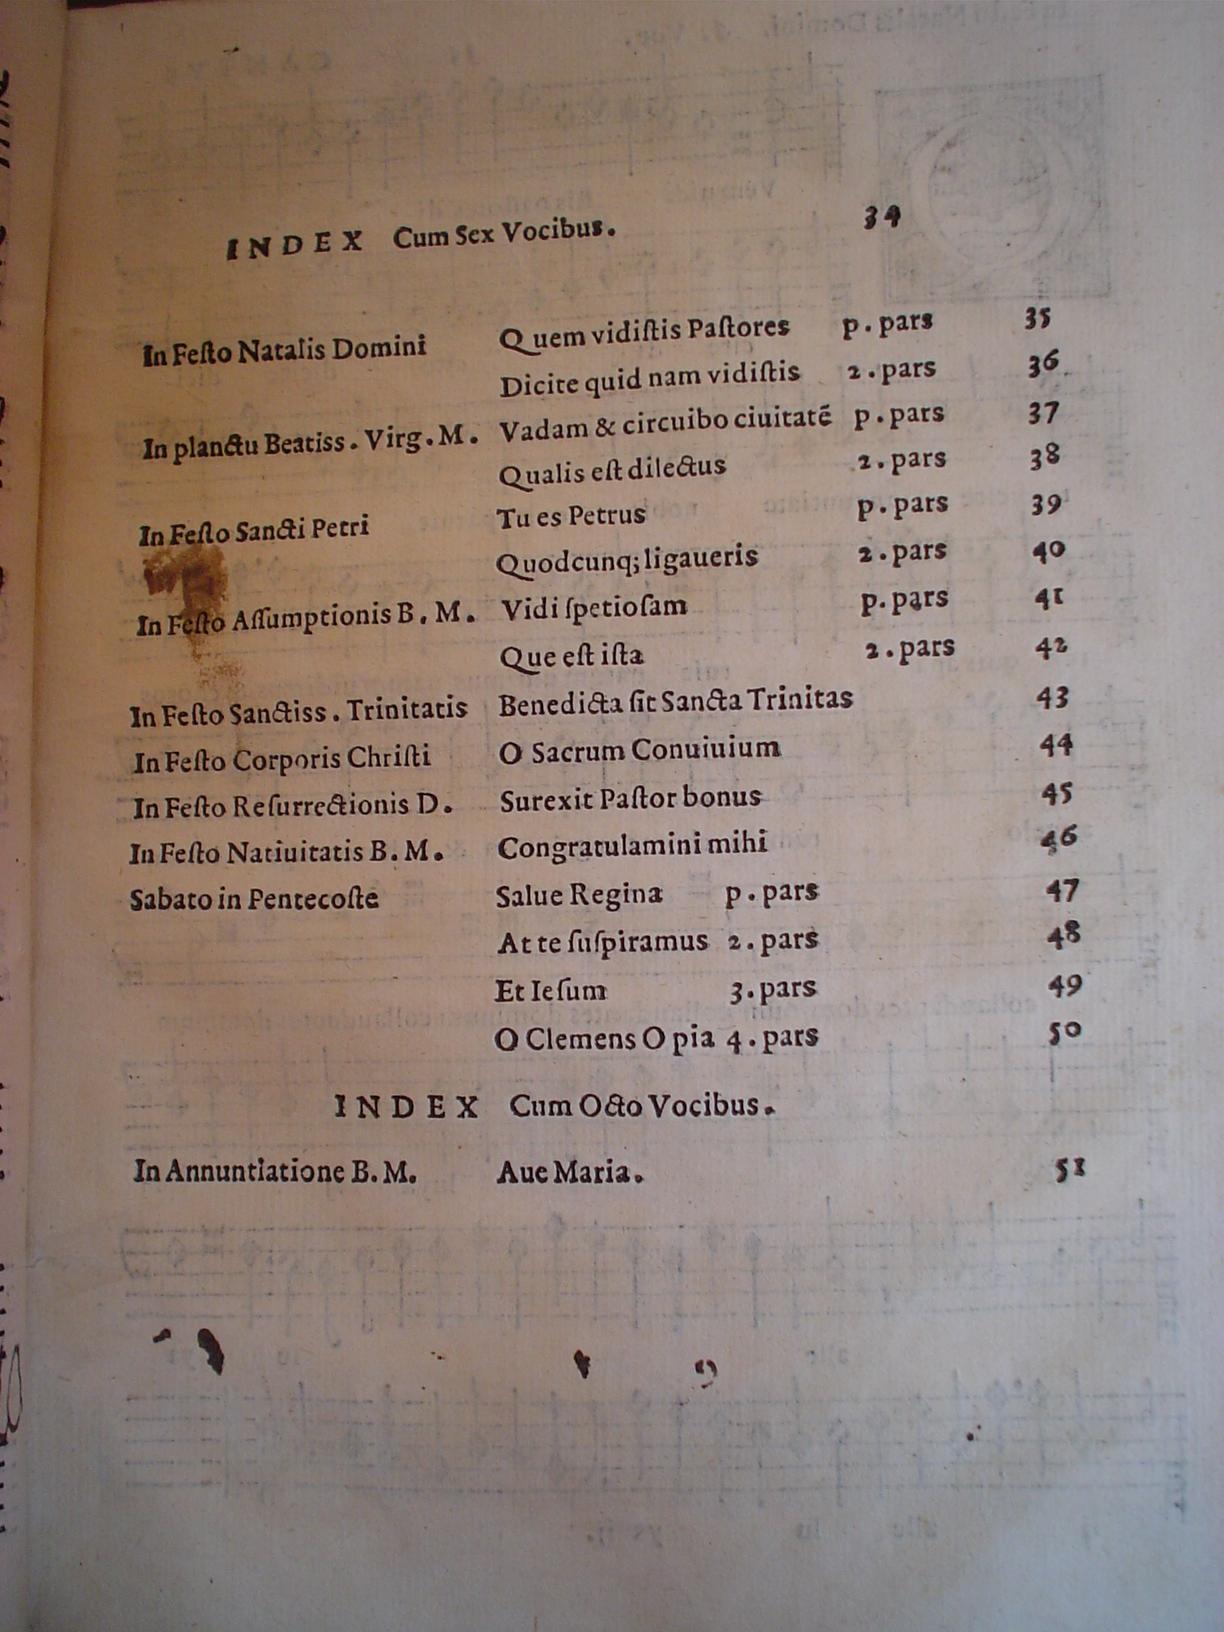 INDEX Cum Sex Vocibus. 34
In Feſto Natalis Domini Quem vidiſtis Paſtores p. pars 35
Dicite quid nam vidiſtis 2. pars 36
In planctu Beatiss. Virg. M. Vadam & circuibo ciuitatẽ p. pars 37
Qualis eſt dilectus 2. pars 38
In Feſto Sancti Petri Tu es Petrus p. pars 39
Quodcunq; ligaueris 2. pars 40
In Feſto Aſſumptionis B. M. Vidi ſpetioſam p. pars 41
Que eſt iſta 2. pars 42
In Feſto Sanctiss. Trinitatis Benedicta ſit Sancta Trinitas 43
In Feſto Corporis Chriſti O Sacrum Conuiuium 44
In Feſto Reſurrectionis D. Surexit Paſtor bonus 45
In Feſto Natiuitatis B. M. Congratulamini mihi 46
Sabato in Pentecoſte Salue Regina p. pars 47
At te ſuſpiramus 2. pars 48
Et Ieſum 3. pars 49
O Clemens O pia 4. pars 50
INDEX Cum Octo Vocibus.
In Annuntiatione B. M. Aue Maria. 51